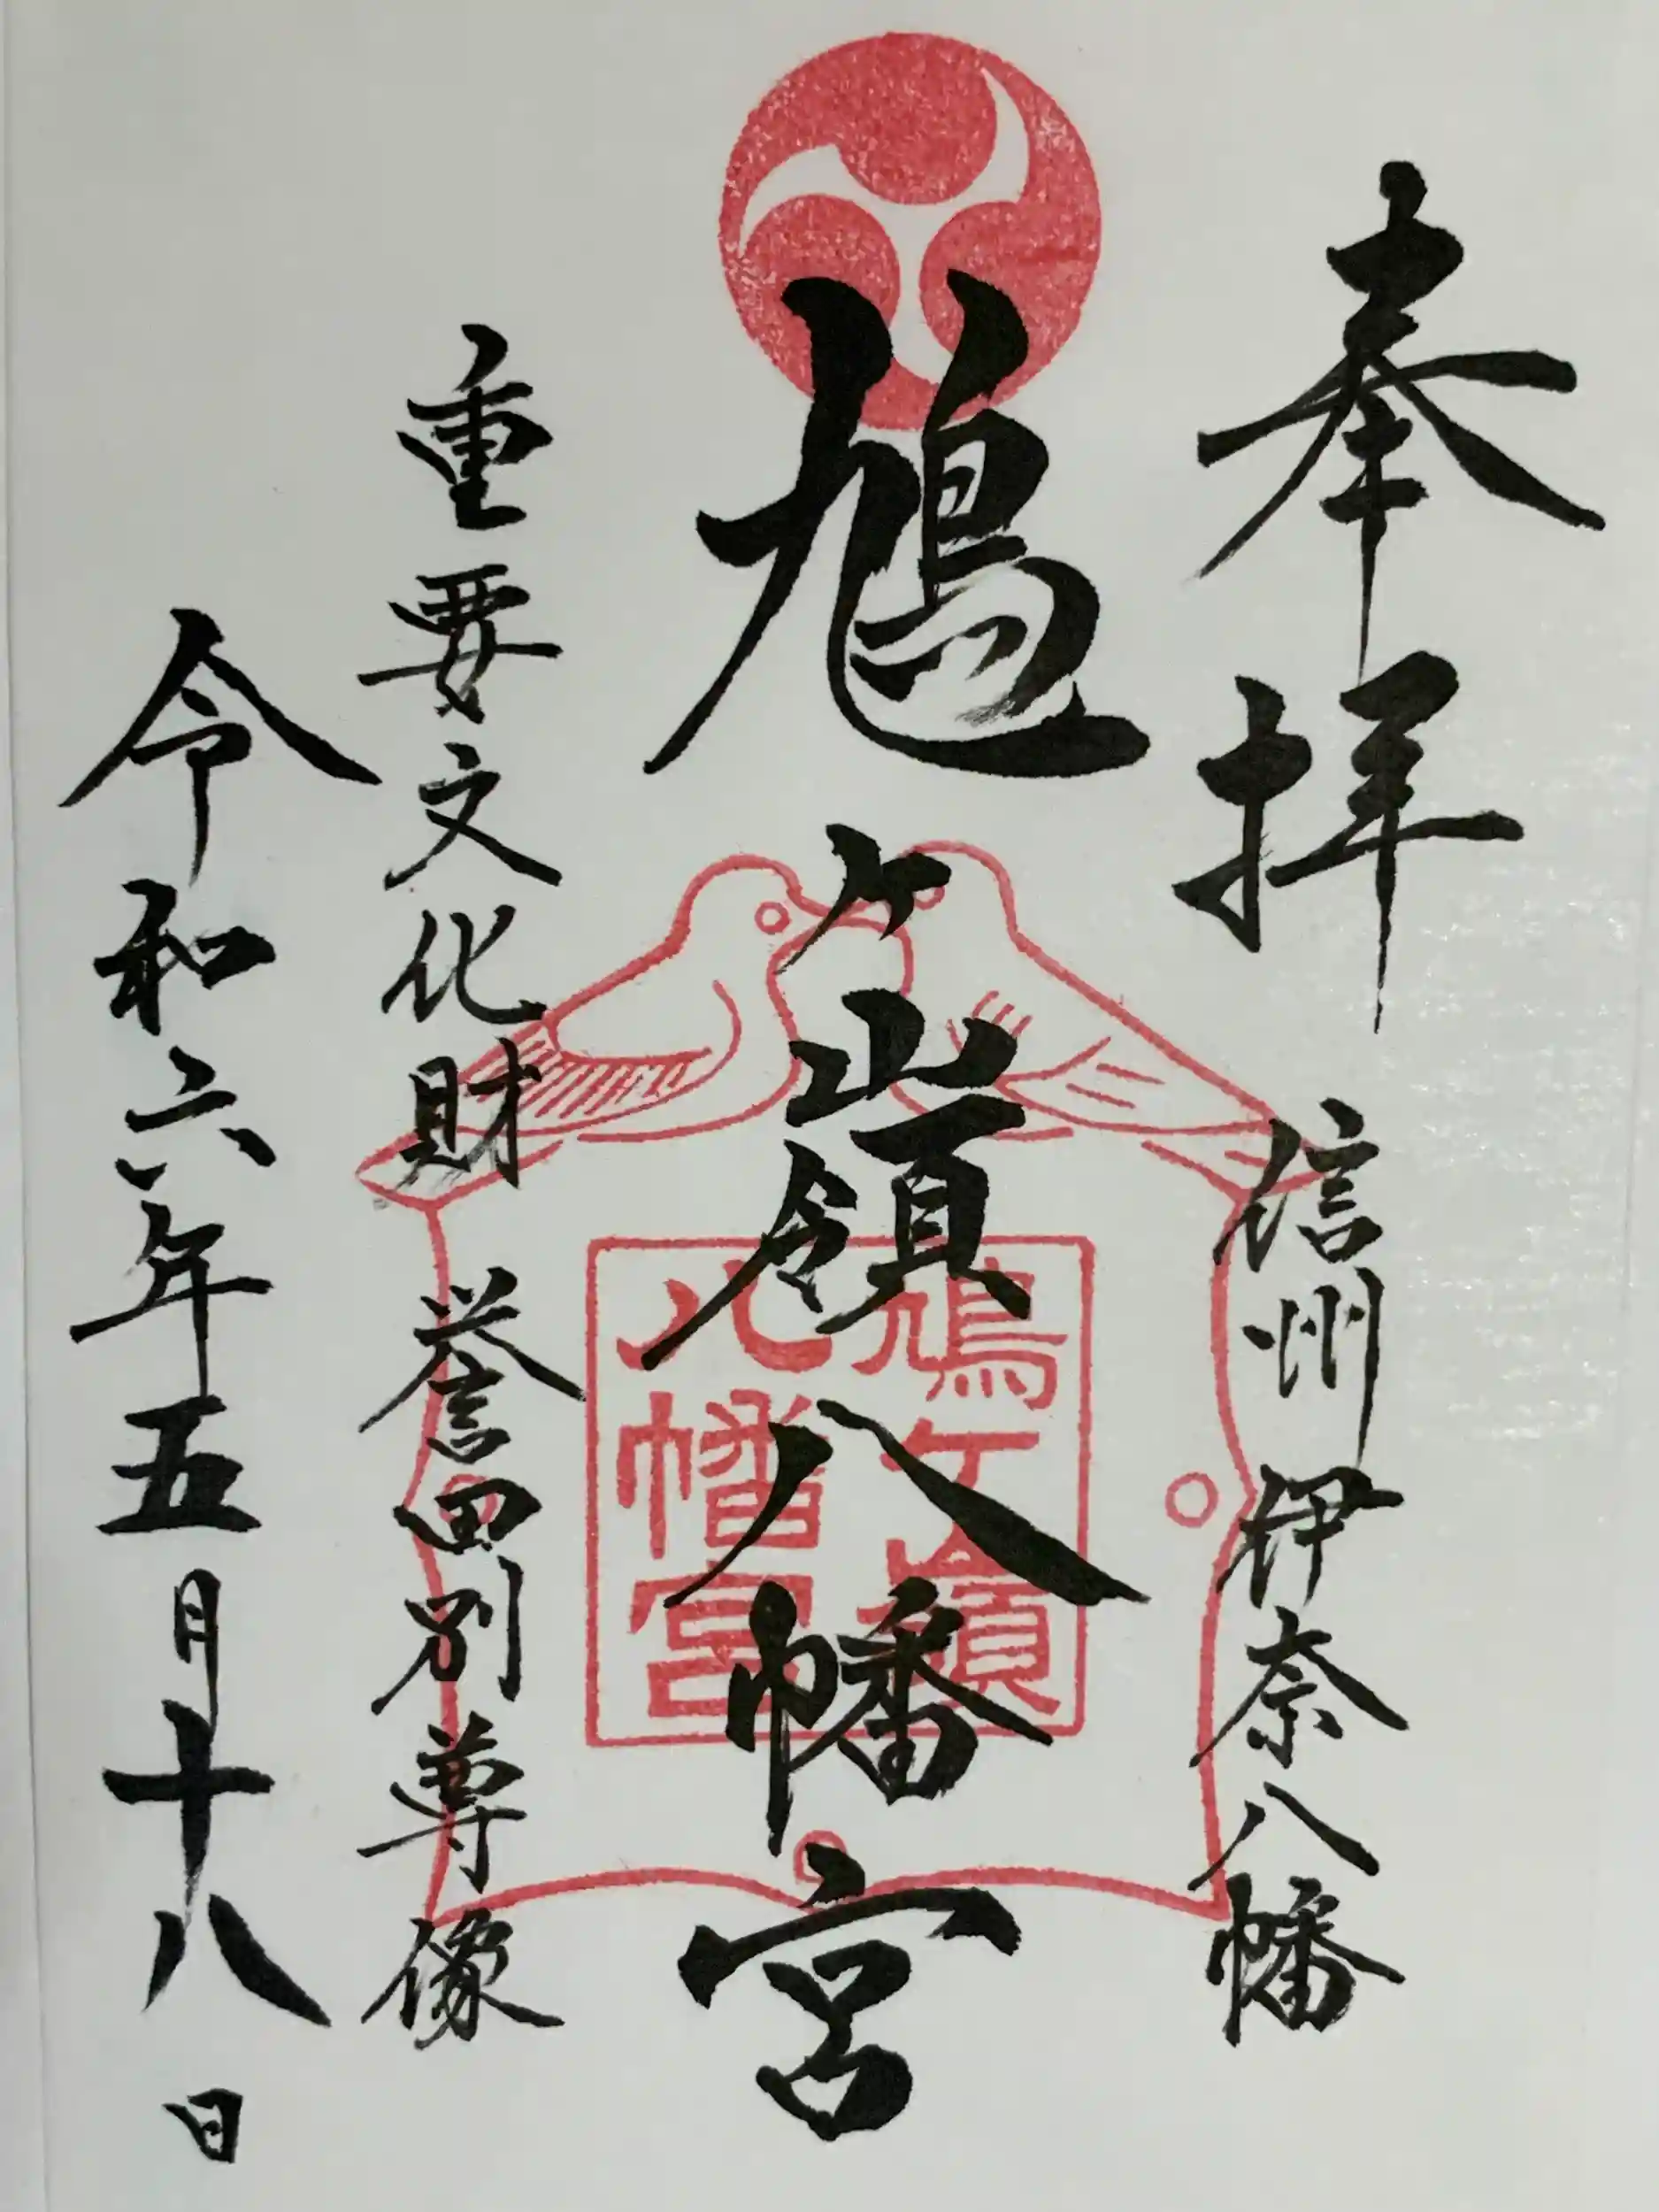 奉拝
信州伊奈八幡
鳩ヶ嶺八幡宮
鳩ヶ嶺
八幡宮
重要文化財
誉田別尊像
令和六年五月十八日